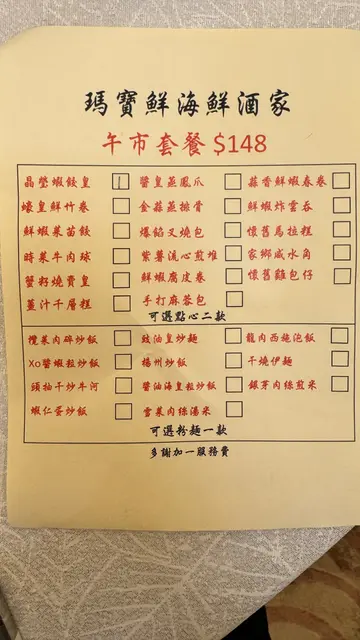 瑪寶鮮海鮮酒家
午市套餐 $148
晶瑩蝦餃皇 醬皇蒸鳳爪 蒜香鮮蝦春卷
蠔皇鮮竹卷 金蒜蒸排骨 鮮蝦炸雲吞
鮮蝦菜苗餃 爆餡叉燒包 懷舊馬拉糕
時菜牛肉球 紫薯流心煎堆 家鄉咸水角
蟹籽燒賣皇 鮮蝦腐皮卷 懷舊雞包仔
薑汁千層糕 手打麻蓉包
可選點心二款
欖菜肉碎炒飯 豉油皇炒麵 龍肉西施泡飯
Xo醬蝦粒炒飯 揚州炒飯 干燒伊麵
頭抽干炒牛河 醬油海皇粒炒飯 銀芽肉絲煎米
蝦仁蛋炒飯 雪菜肉絲湯米
可選粉麵一款
多謝加一服務費